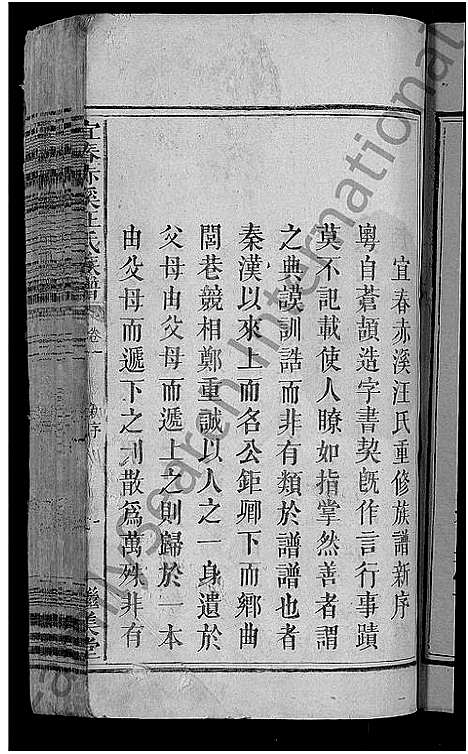 宜春赤溪汪氏重修族譜新序
粵自蒼頡造字書契旣作言行事蹟
莫不記載使人瞭如指掌然善者謂
之典謨訓誥而非有類於譜譜也者
秦漢以來上而名公鉅卿下而鄉曲
閭巷競相鄭重誠以人之一身遺於
父母由父母而遞上之則歸於一本
由父母而遞下之則散爲萬殊非有
宜春赤溪汪氏族譜 卷 新序